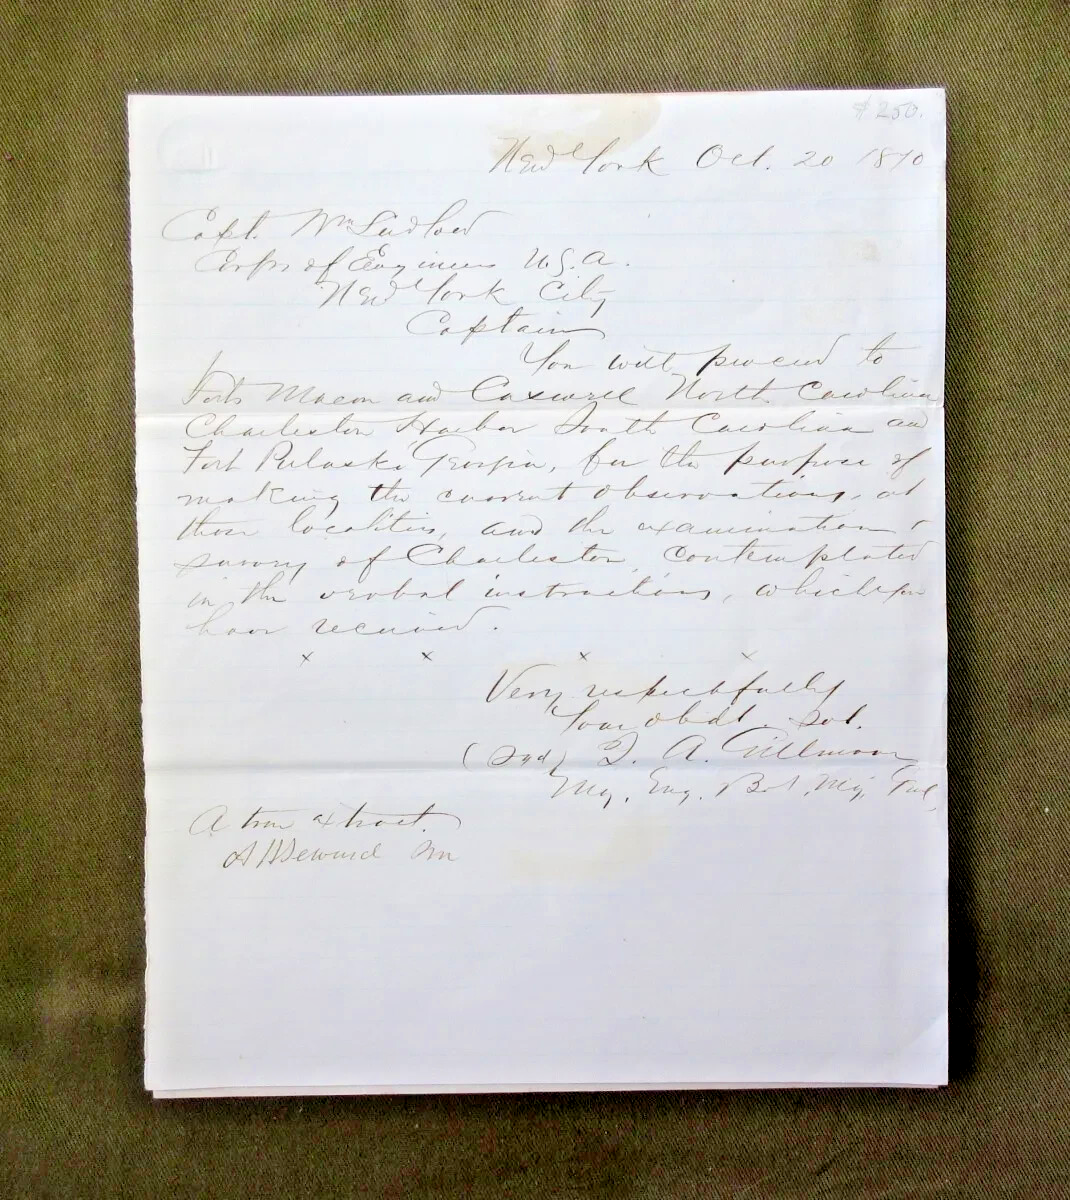 $250.
New York Oct. 20 1870
Capt. Wm Ludlow
Corps of Engineers U.S.A.
New York City
Captain
You will proceed to
Forts Macon and Caswell North Carolina
Charleston Harbor South Carolina and
Fort Pulaski Georgia, for the purpose of
making the current observations, at
those localities, and the examination &
survey of Charleston, contemplated
in the verbal instructions, which you
have received.
x x x x
Very respectfully
Your obdt. svt.
(Sgd) Q. A. Gillmore
Maj. Eng. Bvt. Maj. Genl,
A true extract.